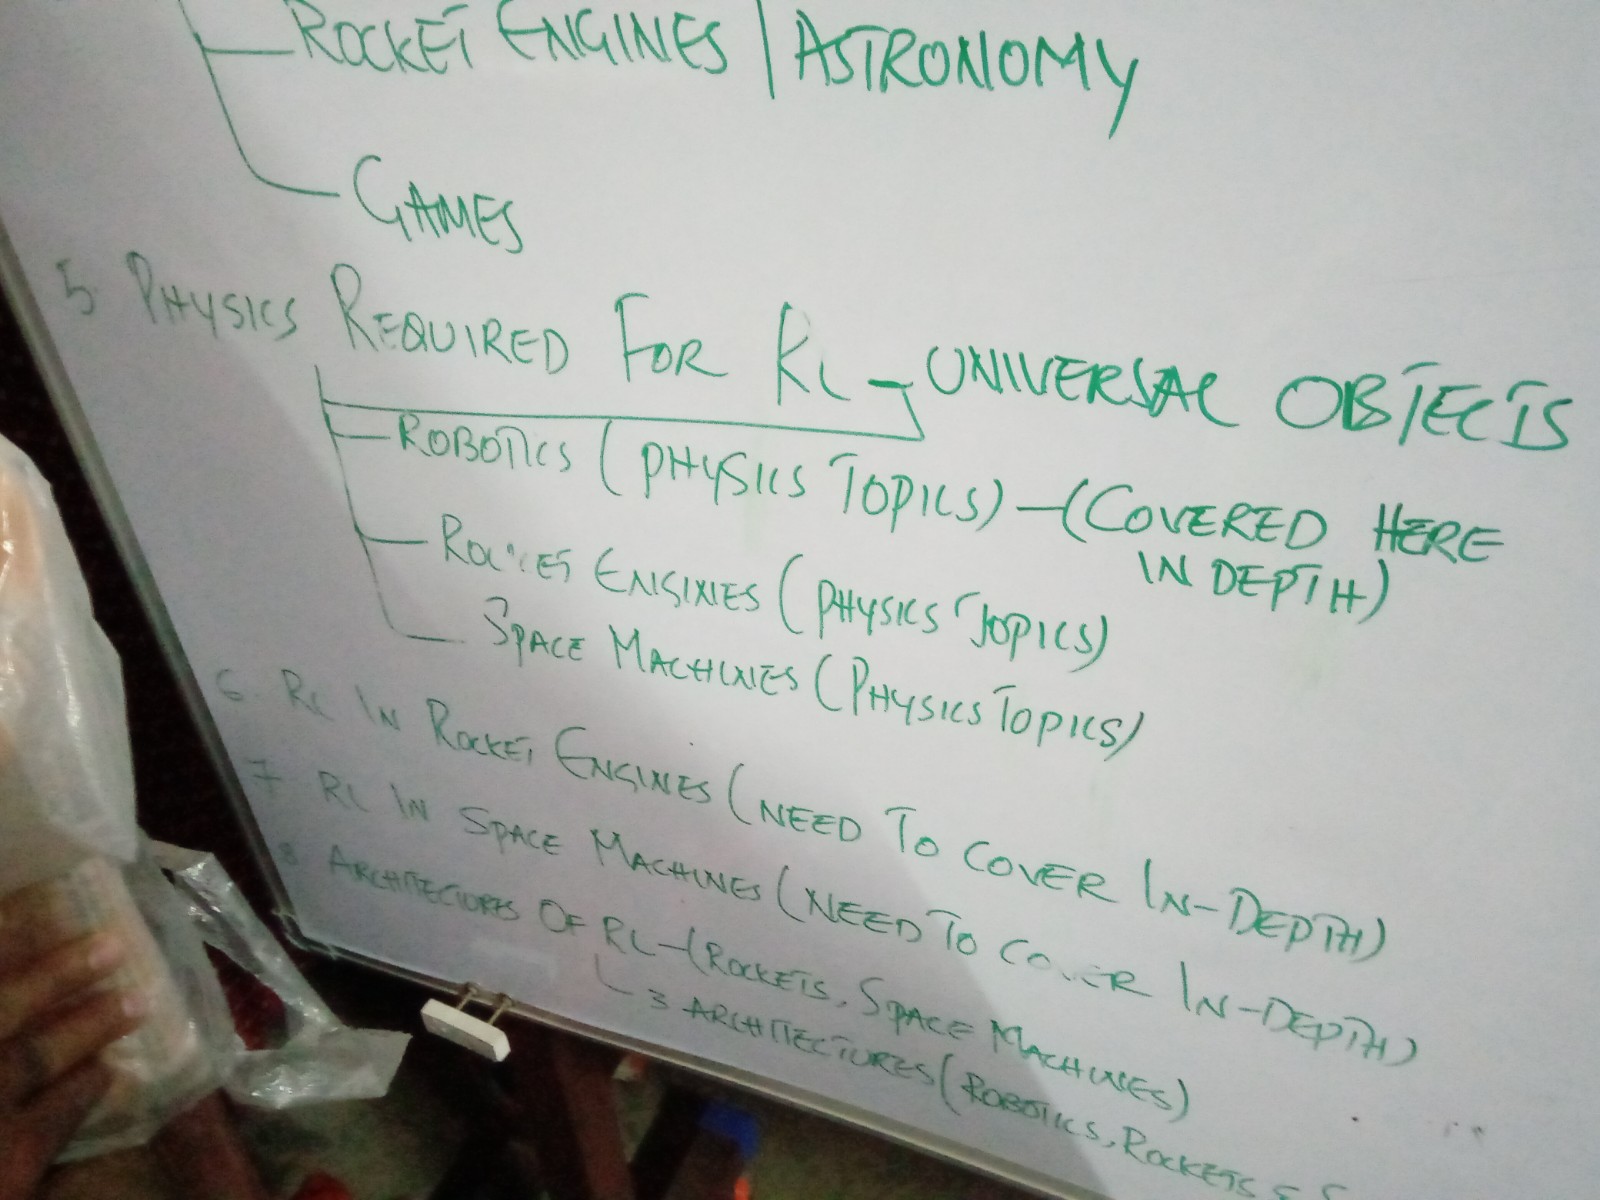 ROCKET ENGINES | ASTRONOMY
GAMES
5. PHYSICS REQUIRED FOR RL - UNIVERSAL OBJECTS
ROBOTICS (PHYSICS TOPICS) - (COVERED HERE
IN DEPTH)
ROCKET ENGINES (PHYSICS TOPICS)
SPACE MACHINES (PHYSICS TOPICS)
6. RL IN ROCKET ENGINES (NEED TO COVER IN-DEPTH)
7 RL IN SPACE MACHINES (NEED TO COVER IN-DEPTH)
8 ARCHITECTURES OF RL - (ROCKETS, SPACE MACHINES)
3 ARCHITECTURES (ROBOTICS, ROCKETS